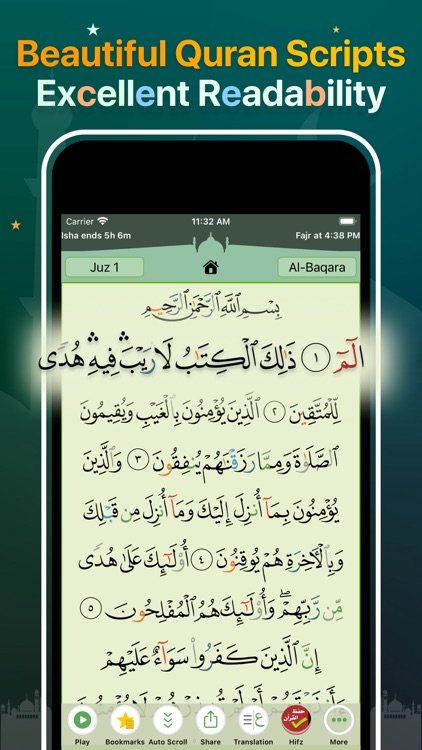 Beautiful Quran Scripts
Excellent Readability
Carrier 11:32 AM
Isha ends 5h 6m Fajr at 4:38 PM
Juz 1 Al-Baqara
بِسْمِ ٱللَّهِ ٱلرَّحْمَٰنِ ٱلرَّحِيمِ
الٓمٓ ١ ذَٰلِكَ الْكِتَٰبُ لَا رَيْبَ ۛ فِيهِ ۛ هُدًى
لِّلْمُتَّقِينَ ٢ الَّذِينَ يُؤْمِنُونَ بِالْغَيْبِ وَيُقِيمُونَ
الصَّلَوٰةَ وَمِمَّا رَزَقْنَٰهُمْ يُنفِقُونَ ٣ وَالَّذِينَ
يُؤْمِنُونَ بِمَآ أُنزِلَ إِلَيْكَ وَمَآ أُنزِلَ مِن قَبْلِكَ
وَبِالْءَاخِرَةِ هُمْ يُوقِنُونَ ٤ أُو۟لَٰٓئِكَ عَلَىٰ هُدًى
مِّن رَّبِّهِمْ ۖ وَأُو۟لَٰٓئِكَ هُمُ الْمُفْلِحُونَ ٥
إِنَّ الَّذِينَ كَفَرُوا۟ سَوَآءٌ عَلَيْهِمْ
ءَأَنذَرْتَهُمْ أَمْ لَمْ تُنذِرْهُمْ لَا يُؤْمِنُونَ
Play Bookmarks Auto Scroll Share Translation Hifz More
حفظ
القرآن